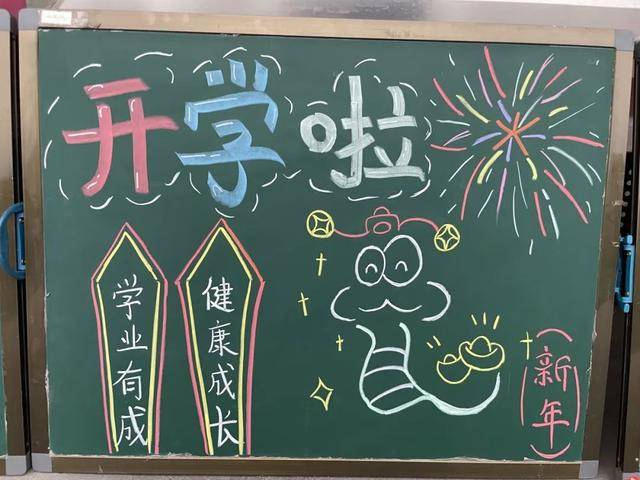 开学啦
学业有成
健康成长
（新年）